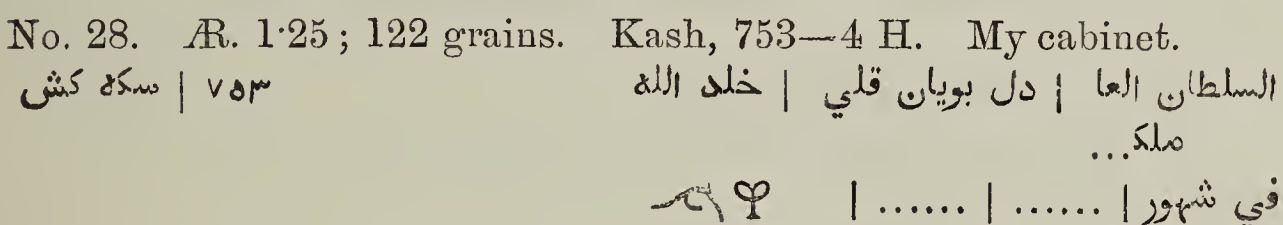 No. 28. Æ. 1·25; 122 grains. Kash, 753—4 H. My cabinet.
السلطان العا | دل بويان قلي | خلد الله
٧٥٣ | سكه كش
ملكـ...
في شهور | ...... | ...... |